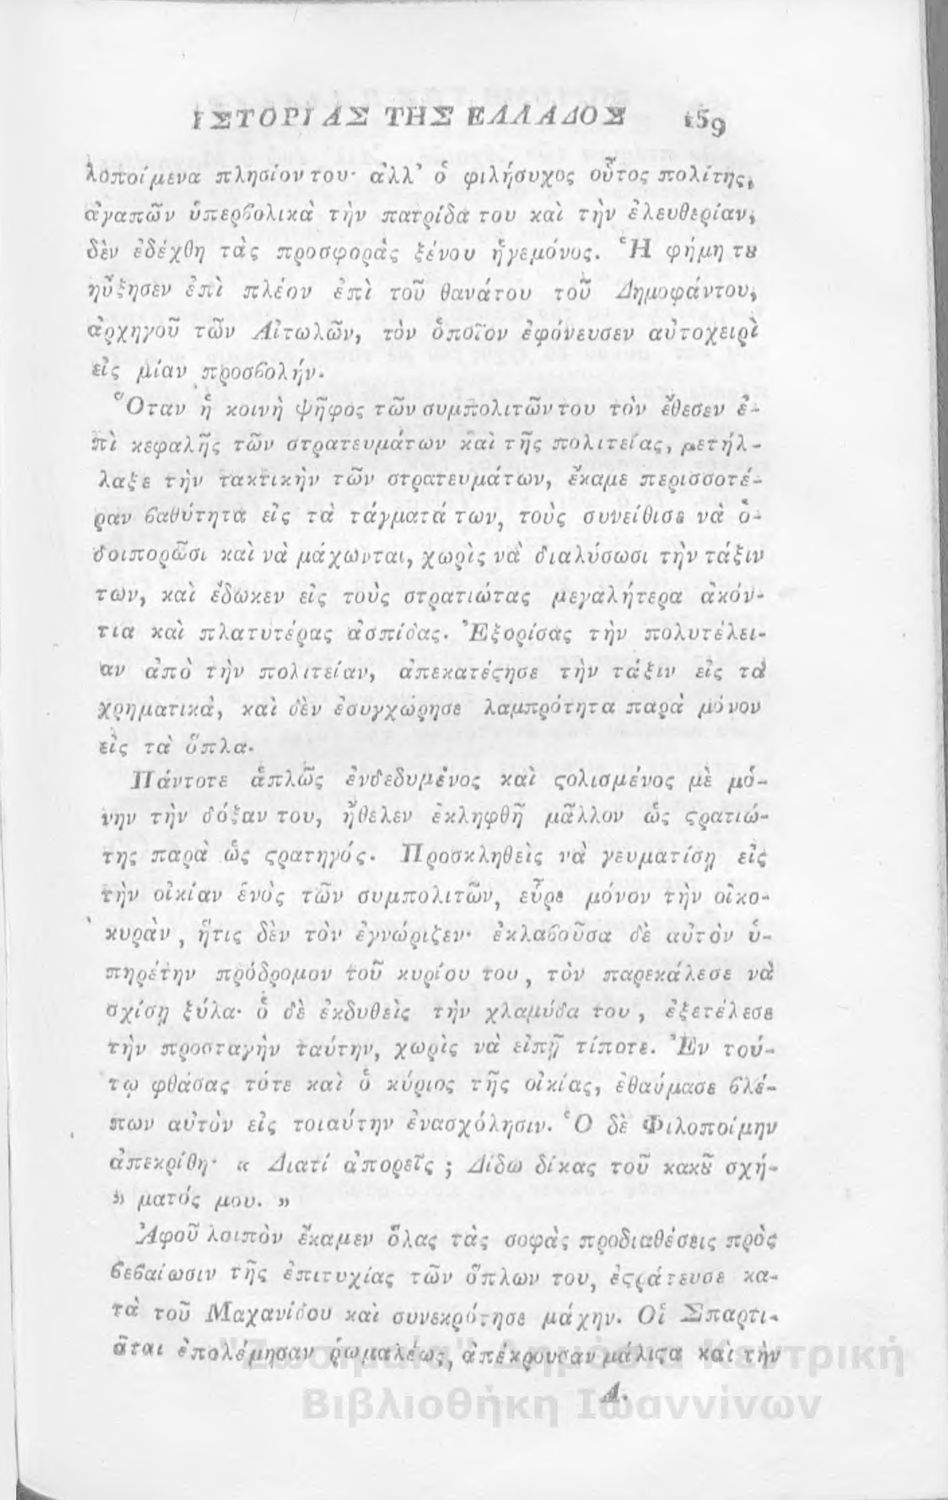 ΙΣΤΟΡΙΑΣ ΤΗΣ ΕΛΛΑΔΟΣ 159
λοποίμενα πλησίον του· ἀλλ' ὁ φιλήσυχος οὗτος πολίτης,
ἀγαπῶν ὑπερϐολικὰ τὴν πατρίδα του καὶ τὴν ἐλευθερίαν,
δὲν ἐδέχθη τὰς προσφορὰς ξένου ἡγεμόνος. Ἡ φήμη τȣ
ηὔξησεν ἐπὶ πλέον ἐπὶ τοῦ θανάτου τοῦ Δημοφάντου,
ἀρχηγοῦ τῶν Αἰτωλῶν, τὸν ὁποῖον ἐφόνευσεν αὐτοχειρὶ
εἰς μίαν προσϐολήν.
Ὅταν ἡ κοινὴ ψῆφος τῶν συμπολιτῶν του τὸν ἔθεσεν ἐ-
πὶ κεφαλῆς τῶν στρατευμάτων καὶ τῆς πολιτείας, μετήλ-
λαξε τὴν τακτικὴν τῶν στρατευμάτων, ἔκαμε περισσοτέ-
ραν ϐαθύτητα εἰς τὰ τάγματά των, τοὺς συνείθισε νὰ ὁ-
δοιπορῶσι καὶ νὰ μάχωνται, χωρὶς νὰ διαλύσωσι τὴν τάξιν
των, καὶ ἔδωκεν εἰς τοὺς στρατιώτας μεγαλήτερα ἀκόν-
τια καὶ πλατυτέρας ἀσπίδας. Ἐξορίσας τὴν πολυτέλει-
αν ἀπὸ τὴν πολιτείαν, ἀπεκατέςησε τὴν τάξιν εἰς τὰ
χρηματικὰ, καὶ δὲν ἐσυγχώρησε λαμπρότητα παρὰ μόνον
εἰς τὰ ὅπλα.
Πάντοτε ἁπλῶς ἐνδεδυμένος καὶ ςολισμένος μὲ μό-
νην τὴν δόξαν του, ἤθελεν ἐκληφθῆ μᾶλλον ὡς ςρατιώ-
της παρὰ ὡς ςρατηγός. Προσκληθεὶς νὰ γευματίσῃ εἰς
τὴν οἰκίαν ἑνὸς τῶν συμπολιτῶν, εὗρε μόνον τὴν οἰκο-
κυρὰν, ἥτις δὲν τὸν ἐγνώριζεν· ἐκλαϐοῦσα δὲ αὐτὸν ὑ-
πηρέτην πρόδρομον τοῦ κυρίου του, τὸν παρεκάλεσε νὰ
σχίσῃ ξύλα· ὁ δὲ ἐκδυθεὶς τὴν χλαμύδα του, ἐξετέλεσε
τὴν προσταγὴν ταύτην, χωρὶς νὰ εἰπῇ τίποτε. Ἐν τού-
τῳ φθάσας τότε καὶ ὁ κύριος τῆς οἰκίας, ἐθαύμασε ϐλέ-
πων αὐτὸν εἰς τοιαύτην ἐνασχόλησιν. Ὁ δὲ Φιλοποίμην
ἀπεκρίθη· « Διατί ἀπορεῖς ; Δίδω δίκας τοῦ κακȣ͂ σχή-
» ματός μου. »
Ἀφοῦ λοιπὸν ἔκαμεν ὅλας τὰς σοφὰς προδιαθέσεις πρὸς
ϐεϐαίωσιν τῆς ἐπιτυχίας τῶν ὅπλων του, ἐςράτευσε κα-
τὰ τοῦ Μαχανίδου καὶ συνεκρότησε μάχην. Οἱ Σπαρτι-
ᾶται ἐπολέμησαν ῥωμαλέως, ἀπέκρουσαν μάλιςα καὶ τὴν
Λ.
"Ζωσιμαία" Δημόσια Κεντρική
Βιβλιοθήκη Ιωαννίνων